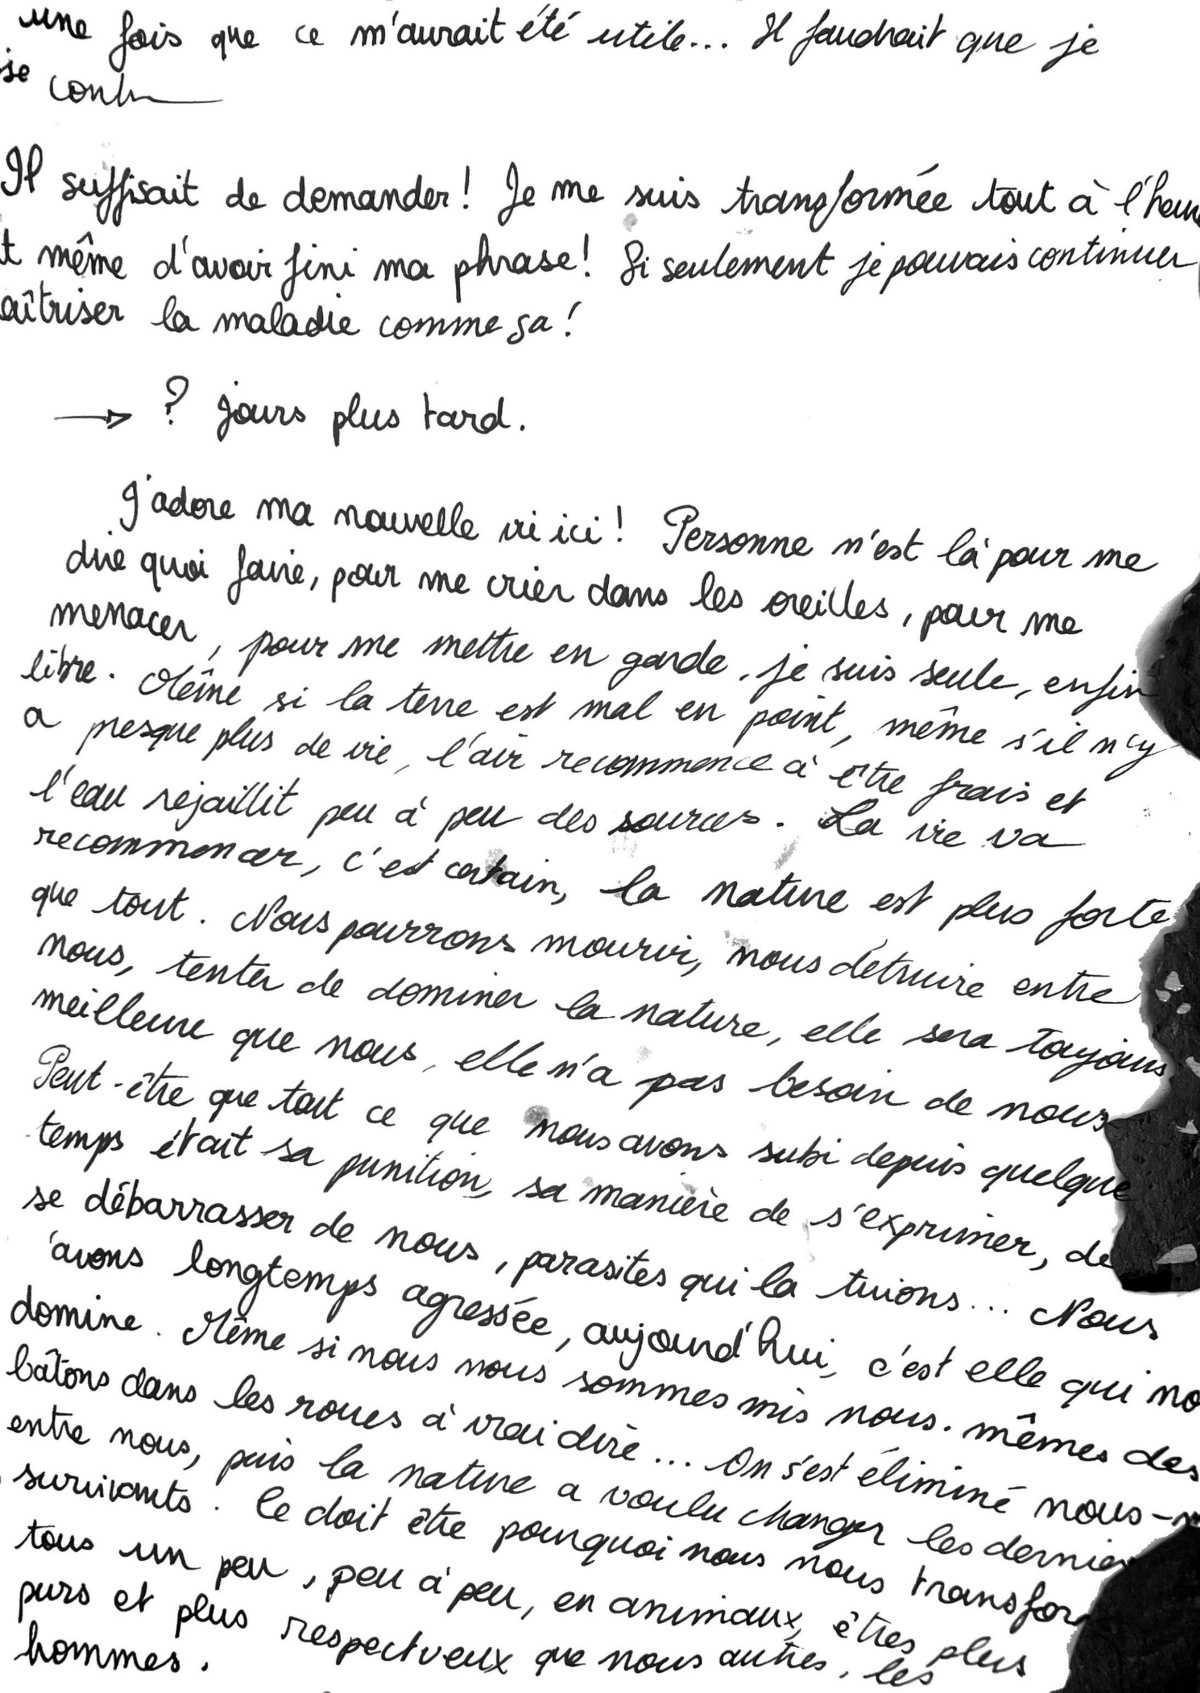 une fois que ce m'aurait été utile... Il faudrait que je
je contr
Il suffisait de demander! Je me suis transformée tout à l'heu
t même d'avoir fini ma phrase! Si seulement je pouvais continuer
aîtriser la maladie comme ça!
→ ? jours plus tard.
J'adore ma nouvelle vi ici! Personne n'est là pour me
dire quoi faire, pour me crier dans les oreilles, pour me
menacer, pour me mettre en garde, je suis seule, enfin
libre. Même si la terre est mal en point, même s'il n'y
a presque plus de vie, l'air recommence à être frais et
l'eau rejaillit peu à peu des sources. La vie va
recommencer, c'est certain, la nature est plus forte
que tout. Nous pourrons mourir, nous détruire entre
nous, tenter de dominer la nature, elle sera toujours
meilleure que nous, elle n'a pas besoin de nous
Peut-être que tout ce que nous avons subi depuis quelque
temps était sa punition, sa manière de s'exprimer, de
se débarrasser de nous, parasites qui la tuions... Nous
'avons longtemps agressée, aujourd'hui, c'est elle qui no
domine. Même si nous nous sommes mis nous-mêmes des
bâtons dans les roues à vrai dire... On s'est éliminé nous-m
entre nous, puis la nature a voulu changer les dernier
survivants. Ce doit être pourquoi nous nous transfor
tous un peu, peu à peu, en animaux, êtres plus
purs et plus respectueux que nous autres, les
hommes.